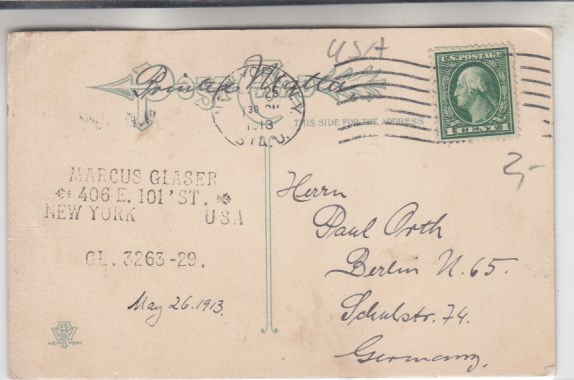 USA
Printed Matter
POST CARD
NEW YORK, N.Y.
25
1913
STA. O.
U.S. POSTAGE
1 CENT 1
THIS SIDE FOR THE ADDRESS
2,-
MARCUS GLASER
406 E. 101' ST.
NEW YORK USA
GL. 3263-29.
May 26. 1913.
Herrn
Paul Orth
Berlin N. 65.
Schulstr. 74.
Germany.
NEW YORK